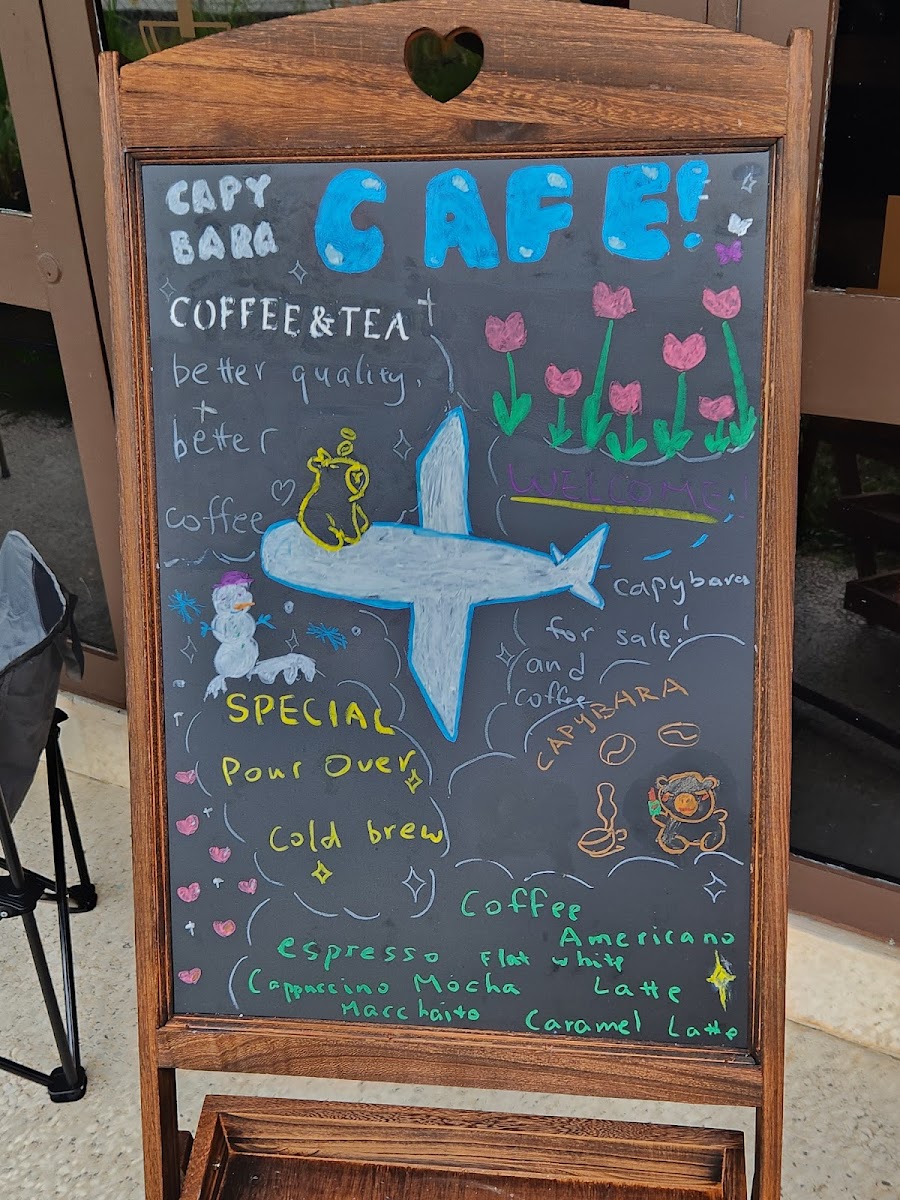 CAPY
BARA
CAFE!
COFFEE & TEA
better quality,
better
coffee
WELCOME!
capybara
for sale!
and
coffee
CAPYBARA
SPECIAL
Pour Over
Cold brew
Coffee
Americano
espresso Flat white
Cappuccino Mocha Latte
Macchaito Caramel Latte